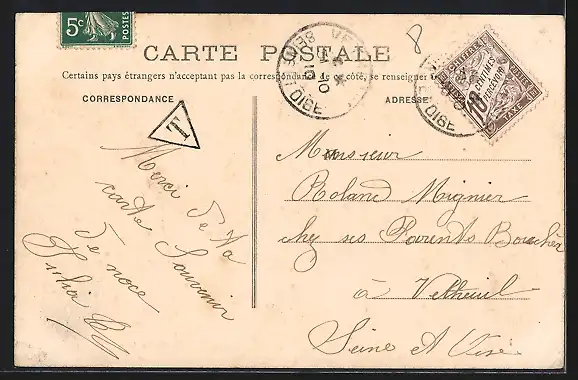 5c
POSTES
8
CARTE POSTALE
Certains pays étrangers n'acceptant pas la correspondance de ce côté, se renseigner
CORRESPONDANCE
ADRESSE
T
10
CENTIMES
A PERCEVOIR
TAXE
SEINE ET OISE
Merci de ta
carte Souvenir
de noce
Monsieur
Roland Mignier
chez ses Parents Boucher
à Vetheuil
Seine et Oise